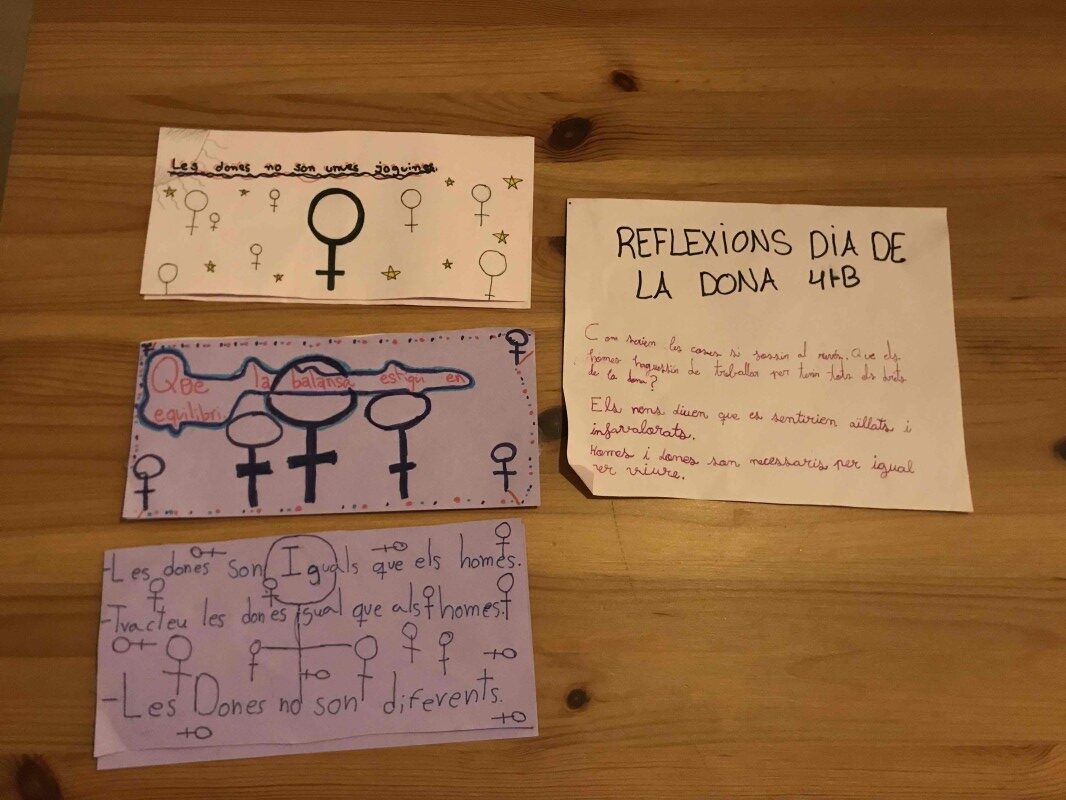 Les dones no son unues joguines.
QUe la balansa estigui en
equilibri
-Les dones son Iguals que els homes.
-Tracteu les dones igual que als homes.
-Les Dones no son diferents.
REFLEXIONS DIA DE
LA DONA 4tB
Com serien les coses si fossin al revés. Que els
homes haguessin de treballar per tenir tots els drets
de la dona?
Els nens diuen que es sentirien aïllats i
infravalorats.
Homes i dones son necessaris per igual
per viure.